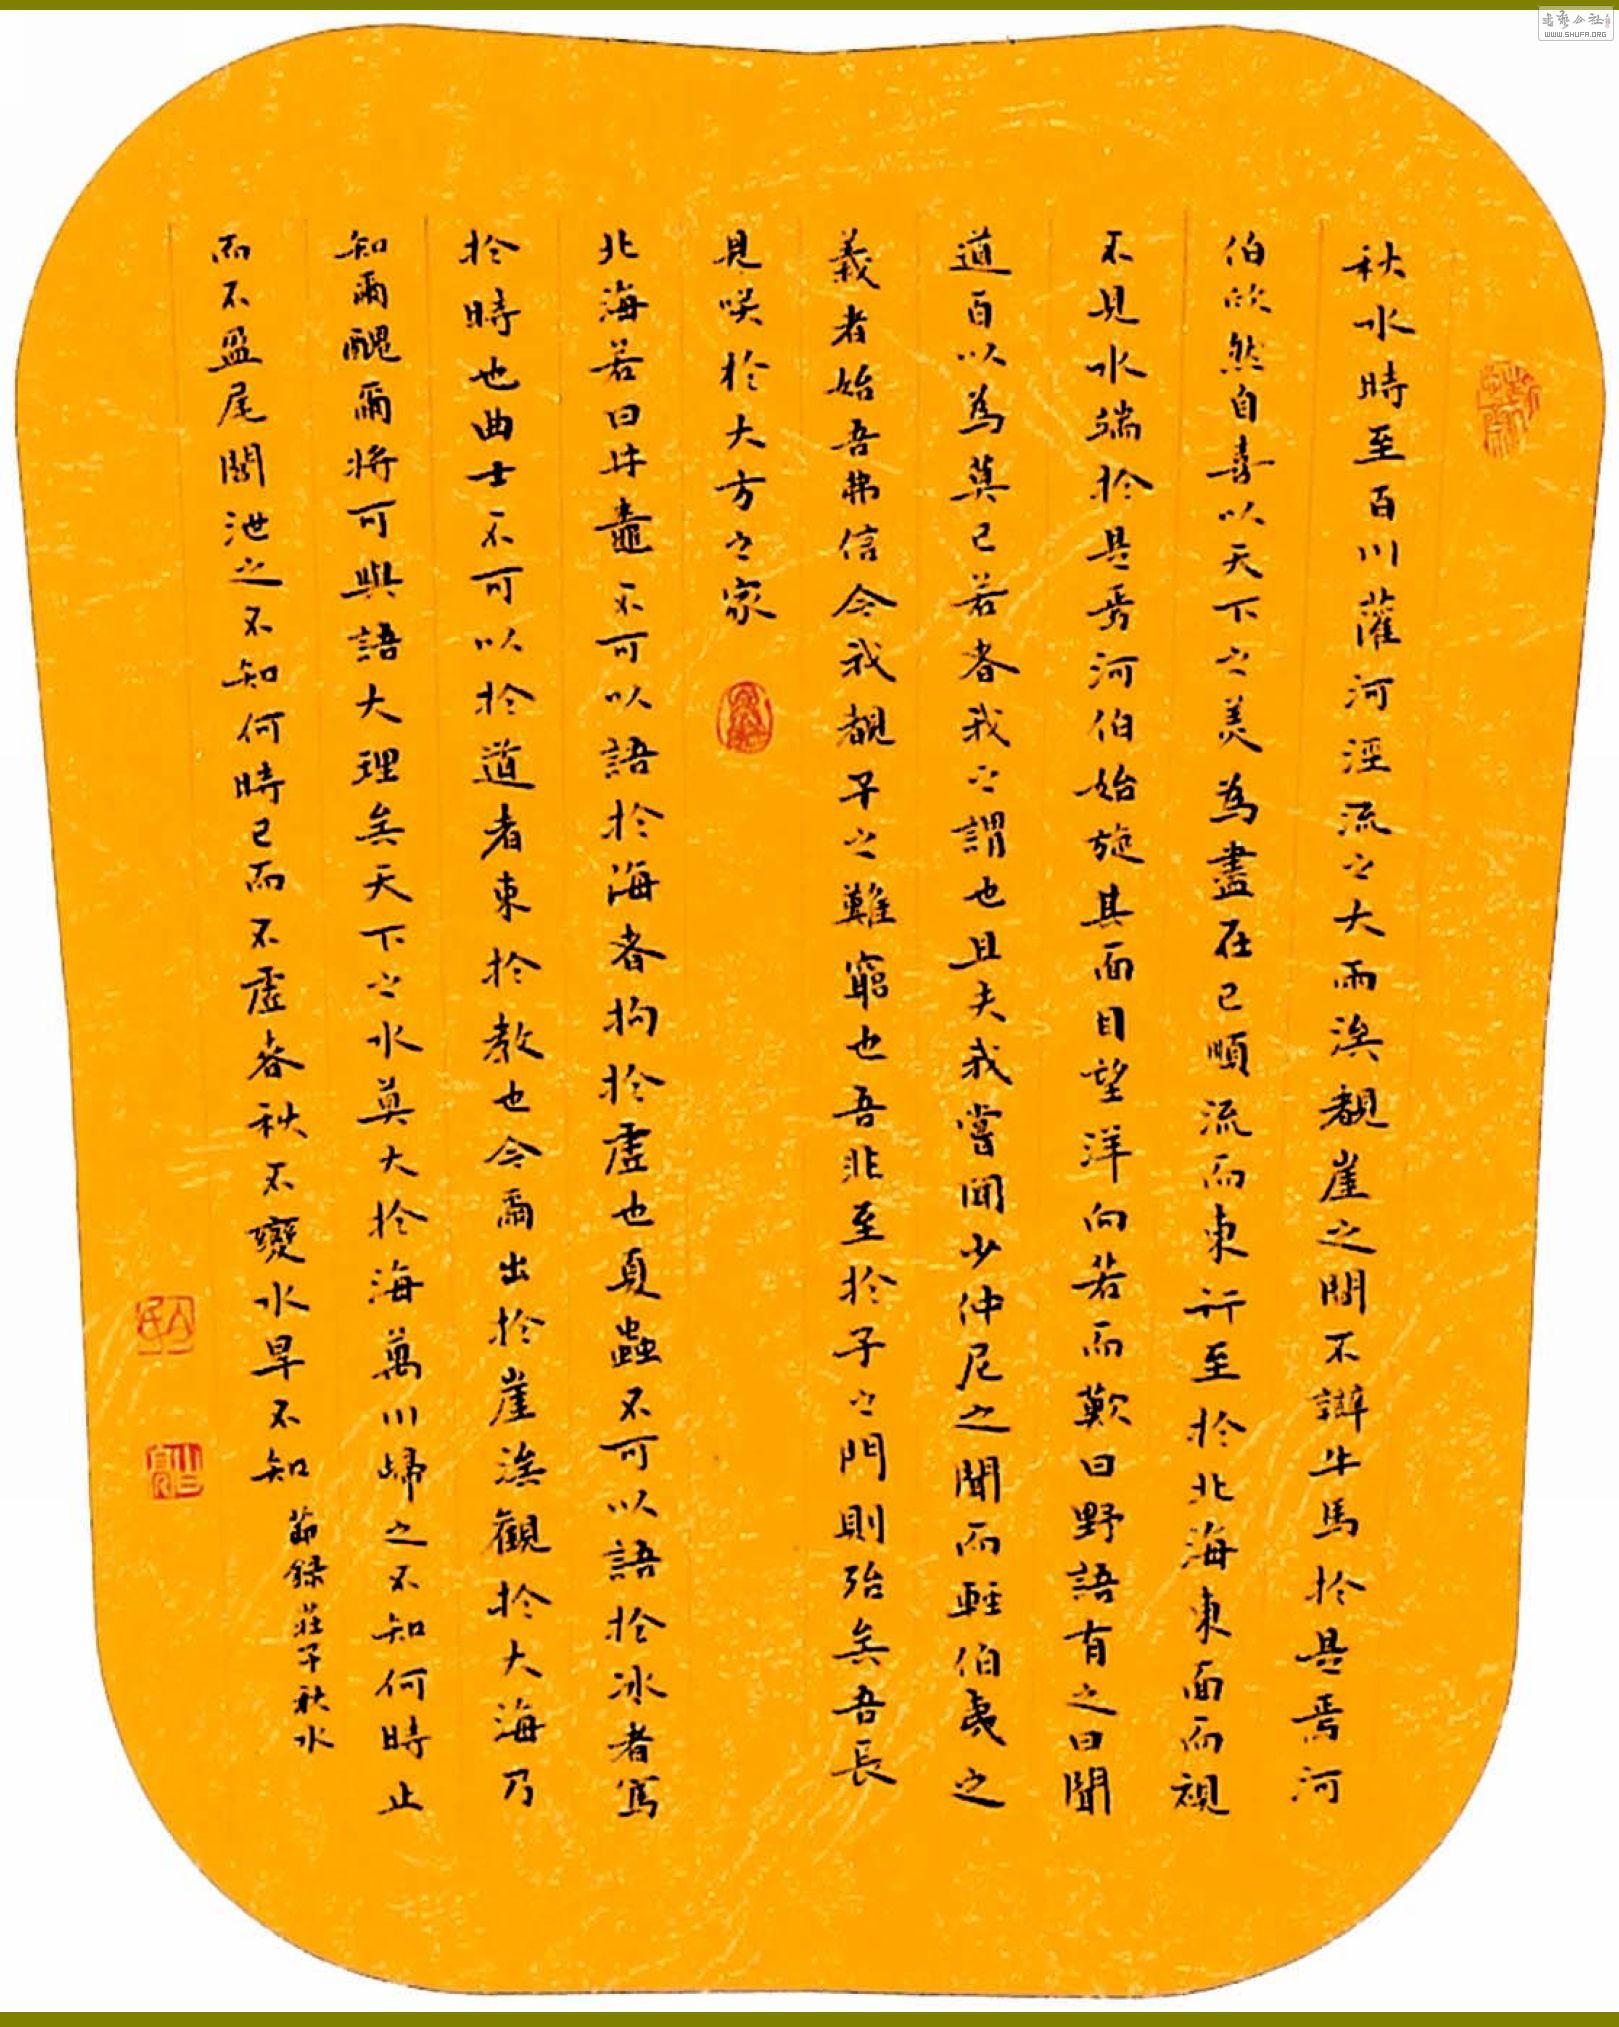 秋水時至百川灌河涇流之大兩涘覩崖之間不辯牛馬於是焉河
伯欣然自喜以天下之美為盡在己順流而東行至於北海東面而視
不見水端於是焉河伯始旋其面目望洋向若而歎曰野語有之曰聞
道百以為莫己若者我之謂也且夫我嘗聞少仲尼之聞而輕伯夷之
義者始吾弗信今我覩子之難窮也吾非至於子之門則殆矣吾長
見咲於大方之家
北海若曰井鼃不可以語於海者拘於虛也夏蟲不可以語於冰者篤
於時也曲士不可以於道者東於教也今爾出於崖涘觀於大海乃
知爾醜爾將可與語大理矣天下之水莫大於海萬川歸之不知何時止
而不盈尾閭泄之不知何時已而不虛春秋不變水旱不知
節錄莊子秋水
WWW.SHUFA.ORG